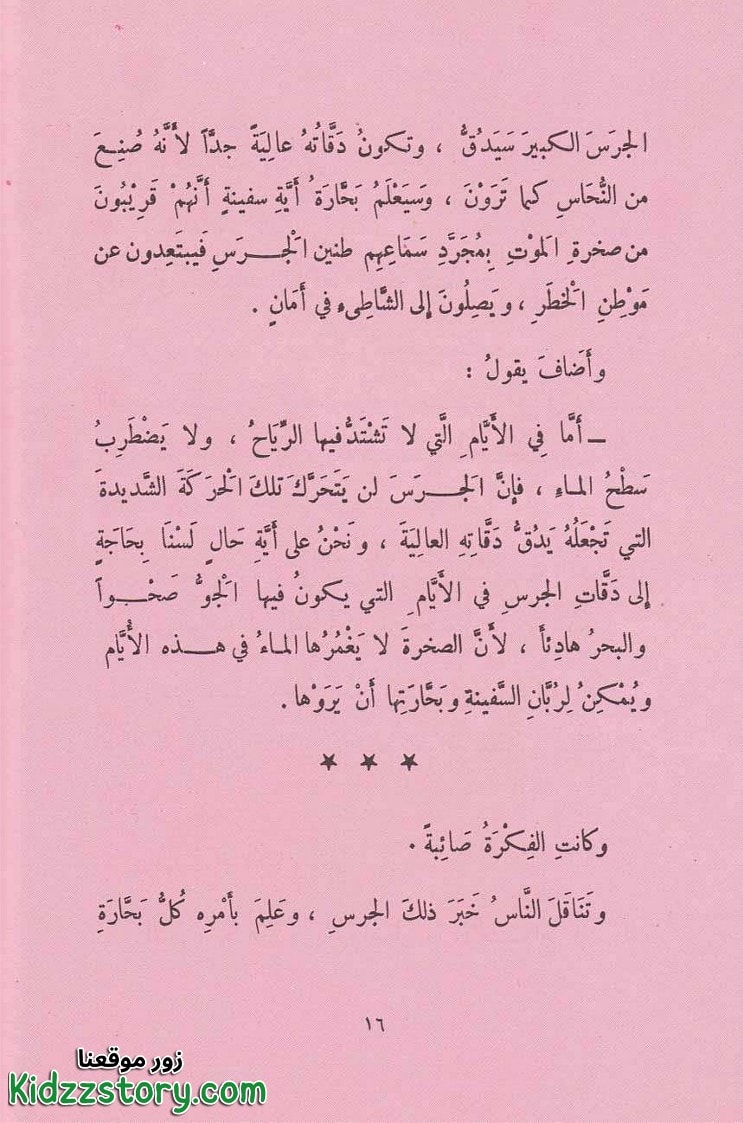 الجرَسَ الكبيرَ سَيَدُقُّ ، وتكونُ دَقَّاتُهُ عالِيَةً جدًّا لأَنَّهُ صُنِعَ
من النُّحَاسِ كما تَرَوْنَ ، وَسَيَعْلَمُ بَحَّارَةُ أَيَّةِ سفينةٍ أَنَّهُمْ قَرِيْبُونَ
من صخرةِ الَموْتِ بِمُجَرَّدِ سَمَاعِهِم طنين الْجرَسِ فَيبتَعِدون عن
مَوْطِنِ الْخطَرِ ، ويَصِلُونَ إلى الشَّاطِىءِ في أَمَانٍ .
وأَضافَ يقولُ :
ــ أَمَّا فِي الأَيَّامِ الَّتي لا تَشْتَدُّ فيها الرِّيَاحُ ، ولا يَضْطَرِبُ
سَطْحُ الماءِ ، فإنَّ الجَرَسَ لن يَتَحَرَّكَ تلكَ الْحَرَكَةَ الشَّديدةَ
التي تَجْعَلُهُ يَدُقُّ دَقَّاتِهِ العالِيَةَ ، ونَحْنُ على أَيَّةِ حَالٍ لَسْنَا بِحَاجَةٍ
إلى دَقَّاتِ الجرسِ في الأَيَّامِ التي يكونُ فيها الْجوُّ صَحْواً
والبحرُ هادِئاً ، لأَنَّ الصخرةَ لا يَغْمُرُها الماءُ في هذه الأَيَّام
ويُمْكِنُ لِرُبَّانِ السَّفينةِ وبَحَّارَتِها أَنْ يَرَوْها .
★ ★ ★
وكانتِ الفِكْرَةُ صَائِبةً .
وتَنَاقَلَ النَّاسُ خَبَرَ ذلكَ الجرسِ ، وعَلِمَ بأَمْرِه كُلُّ بَحَّارَةِ
١٦
زور موقعنا
Kidzzstory.com